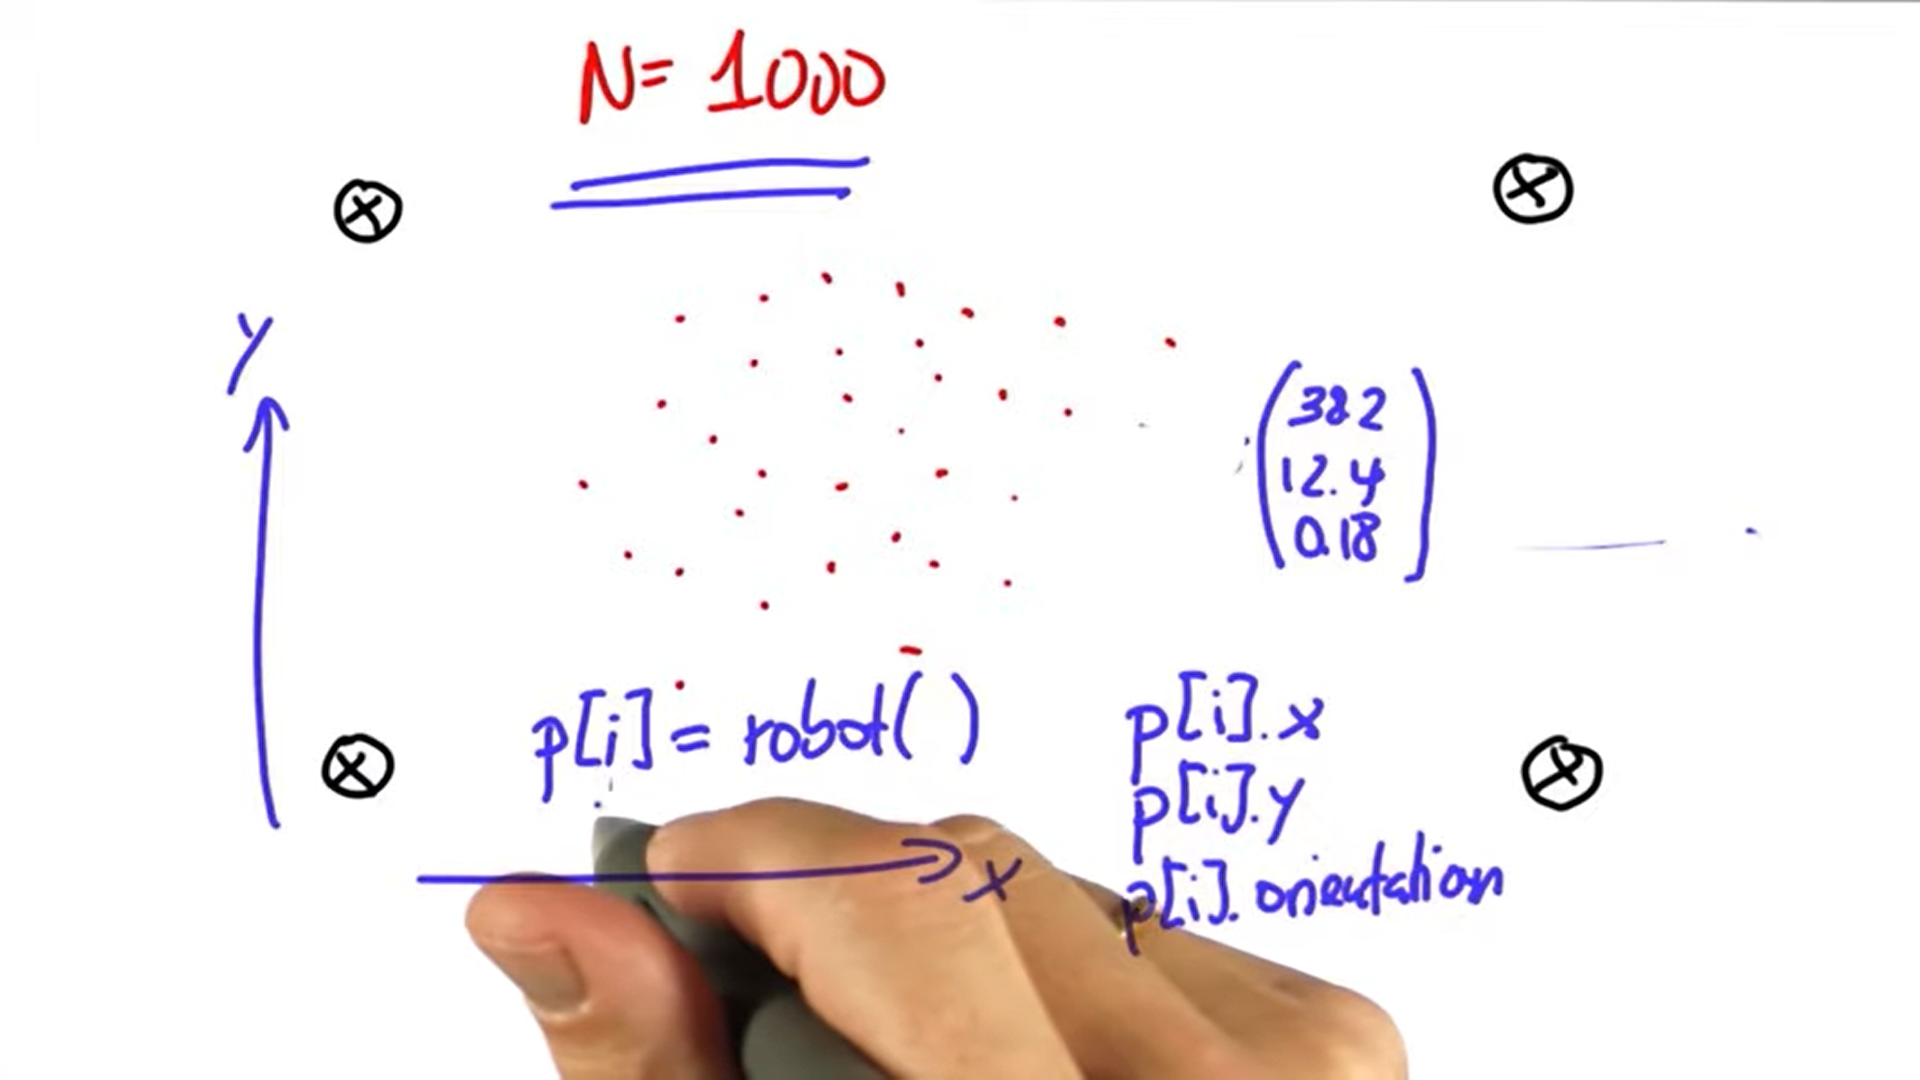 N= 1000
y
382
12.4
0.18
p[i] = robot( )
p[i].x
p[i].y
p[i].orientation
x